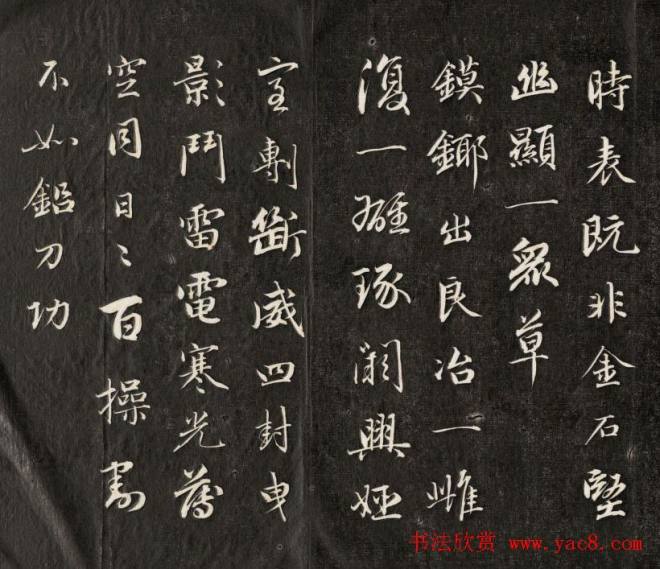 時表既非金石堅
幽顯一衆草
鏌鎁出良冶一雌
復一雄琢闕興姬
室剸斷威四封曳
影鬥雷電寒光薄
空同日〻百操割
不如鉛刀功
书法欣赏 www.yac8.com